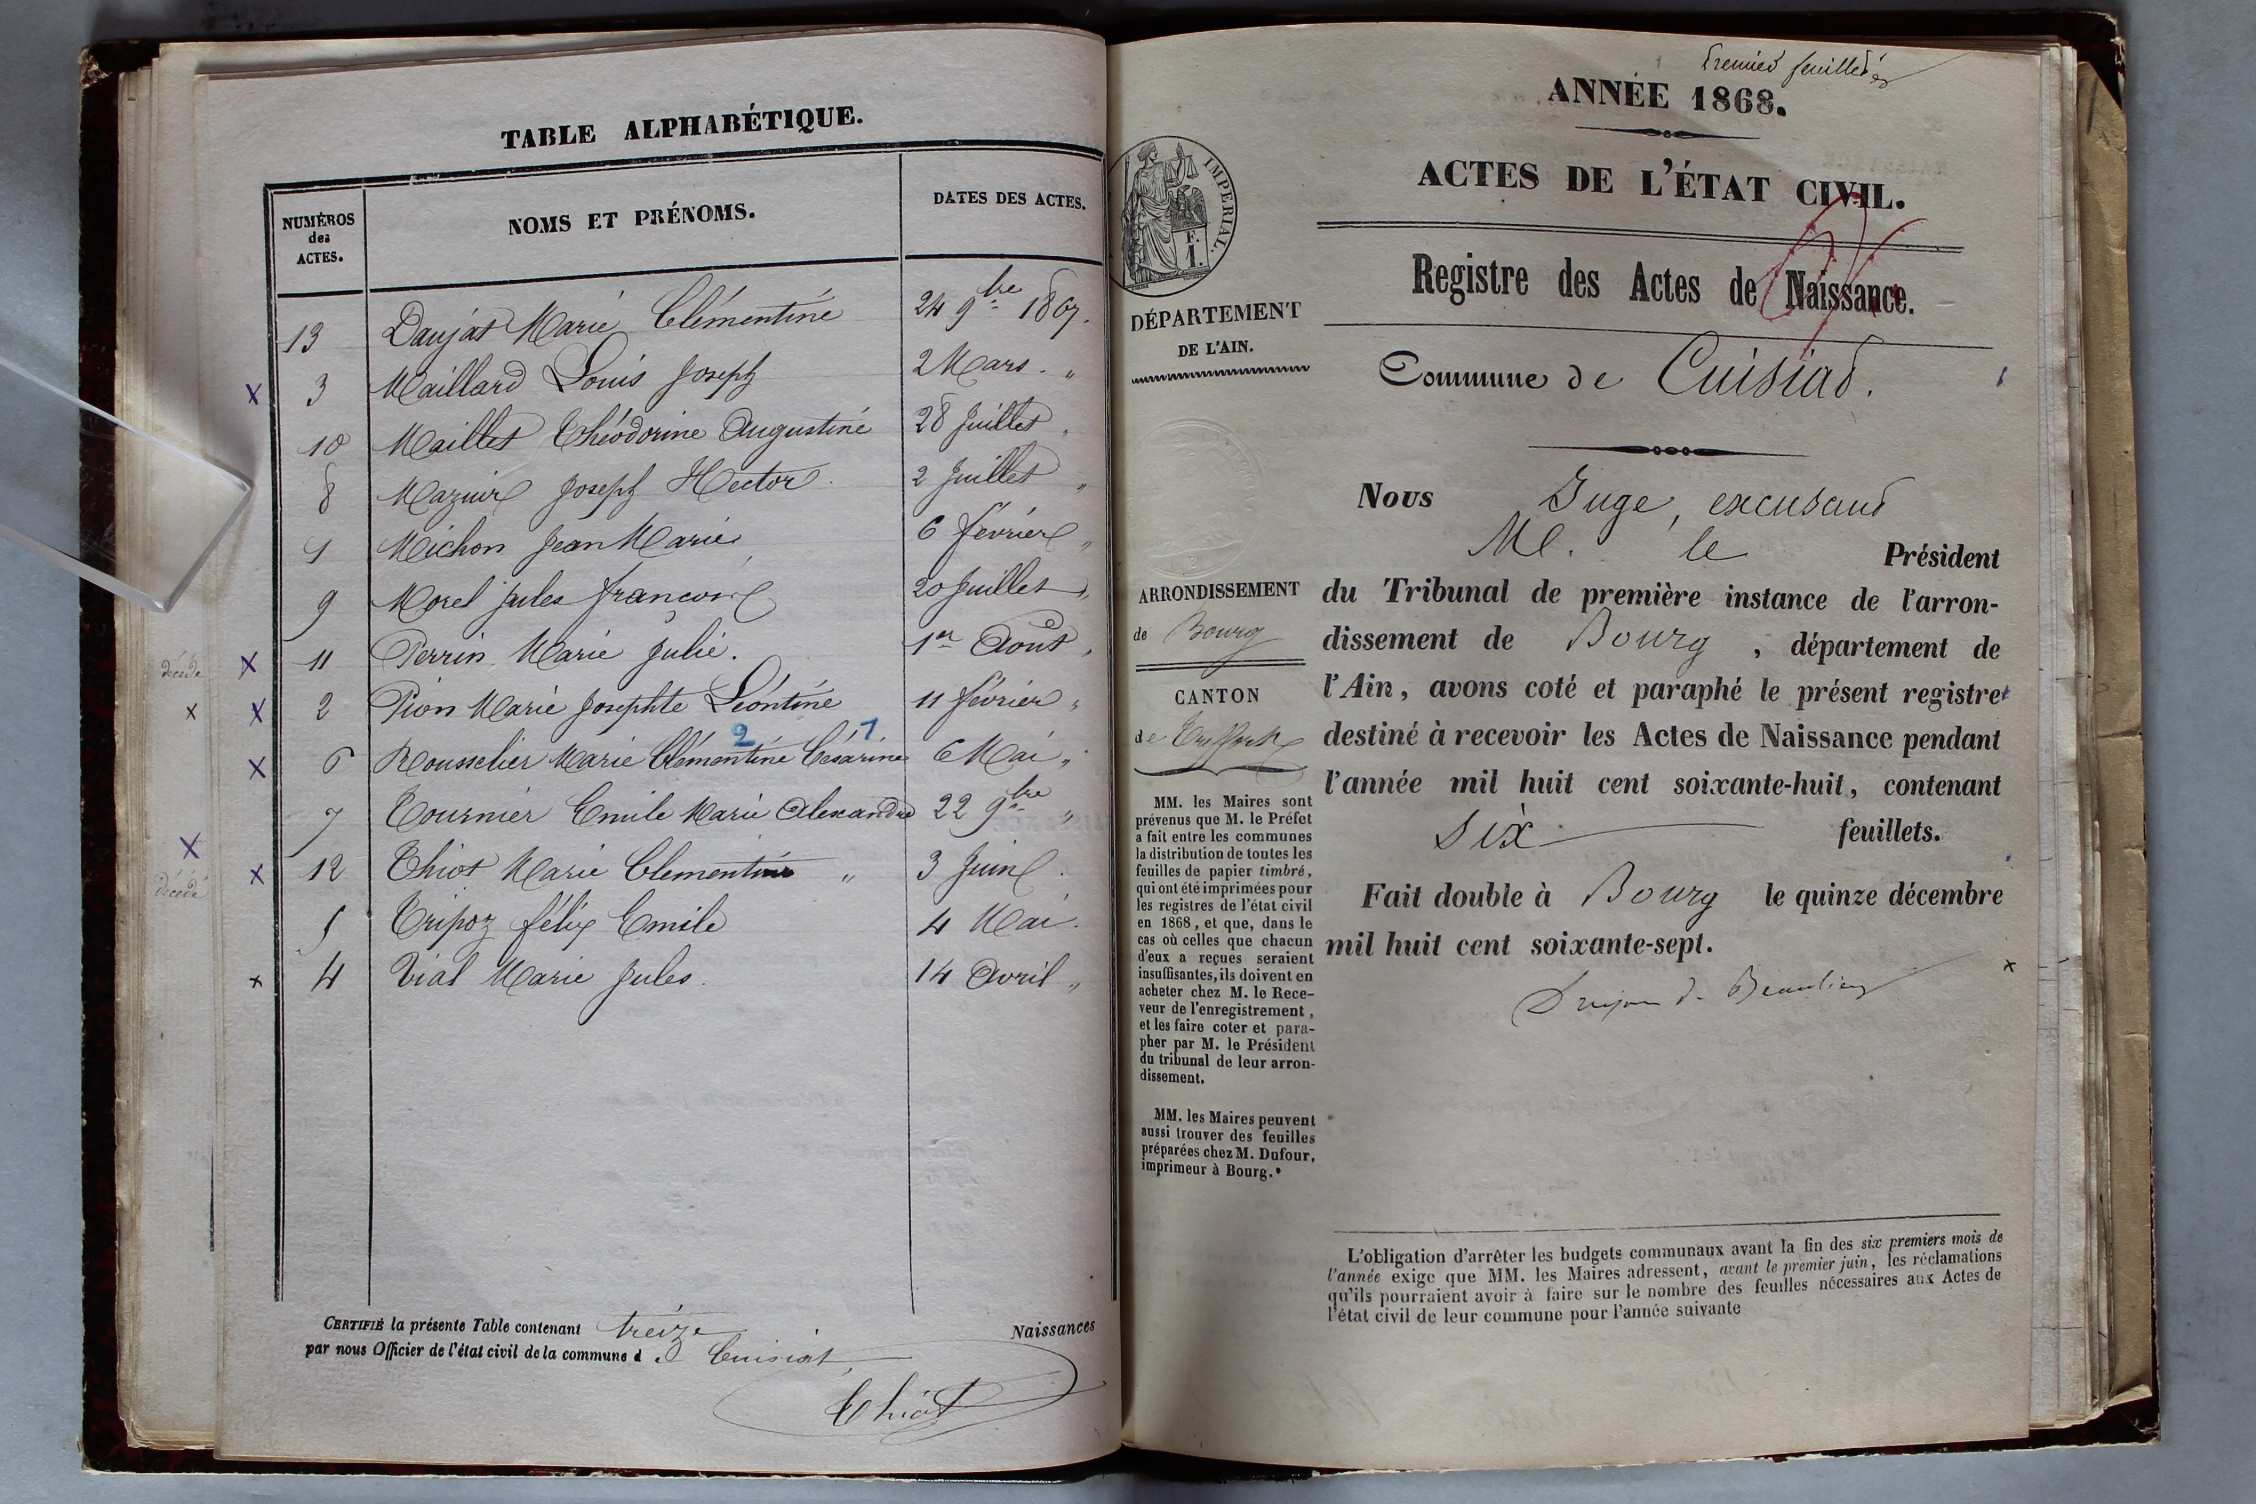 TABLE ALPHABÉTIQUE.
NUMÉROS des ACTES.
NOMS ET PRÉNOMS.
DATES DES ACTES.
13 Daujat Marie Clémentine 24 9bre 1867.
x 3 Maillard Louis Joseph 2 Mars. "
10 Maillet Théodorine Augustine 28 Juillet "
8 Mazuir Joseph Hector. 2 Juillet "
1 Michon Jean Marie 6 février "
9 Morel Jules françois 20 Juillet "
décédé x 11 Perrin Marie Julie. 1er Août "
x x 2 Pion Marie Josephte Léontine 11 février "
2 1
x 6 Rousselier Marie Clémentine Césarine 6 Mai "
7 Tournier Emile Marie Alexandre 22 9bre "
x
décédé x 12 Thiot Marie Clementine " 3 Juin.
5 Tripoz félix Emile 4 Mai.
x 4 Vial Marie Jules. 14 Avril "
CERTIFIÉ la présente Table contenant treize Naissances
par nous Officier de l'état civil de la commune d e Cuisiat,
Thiot
Premier feuillet
ANNÉE 1868.
ACTES DE L'ÉTAT CIVIL.
Registre des Actes de Naissance.
Commune de Cuisiat.
IMPERIAL.
F.
1.
DÉPARTEMENT
DE L'AIN.
ARRONDISSEMENT
de Bourg
CANTON
de Treffort
MM. les Maires sont
prévenus que M. le Préfet
a fait entre les communes
la distribution de toutes les
feuilles de papier timbré,
qui ont été imprimées pour
les registres de l'état civil
en 1868, et que, dans le
cas où celles que chacun
d'eux a reçues seraient
insuffisantes, ils doivent en
acheter chez M. le Rece-
veur de l'enregistrement,
et les faire coter et para-
pher par M. le Président
du tribunal de leur arron-
dissement.
MM. les Maires peuvent
aussi trouver des feuilles
préparées chez M. Dufour,
imprimeur à Bourg.
Nous Juge, excusant
M. le Président
du Tribunal de première instance de l'arron-
dissement de Bourg, département de
l'Ain, avons coté et paraphé le présent registre
destiné à recevoir les Actes de Naissance pendant
l'année mil huit cent soixante-huit, contenant
six feuillets.
Fait double à Bourg le quinze décembre
mil huit cent soixante-sept.
x
L'obligation d'arrêter les budgets communaux avant la fin des six premiers mois de
l'année exige que MM. les Maires adressent, avant le premier juin, les réclamations
qu'ils pourraient avoir à faire sur le nombre des feuilles nécessaires aux Actes de
l'état civil de leur commune pour l'année suivante